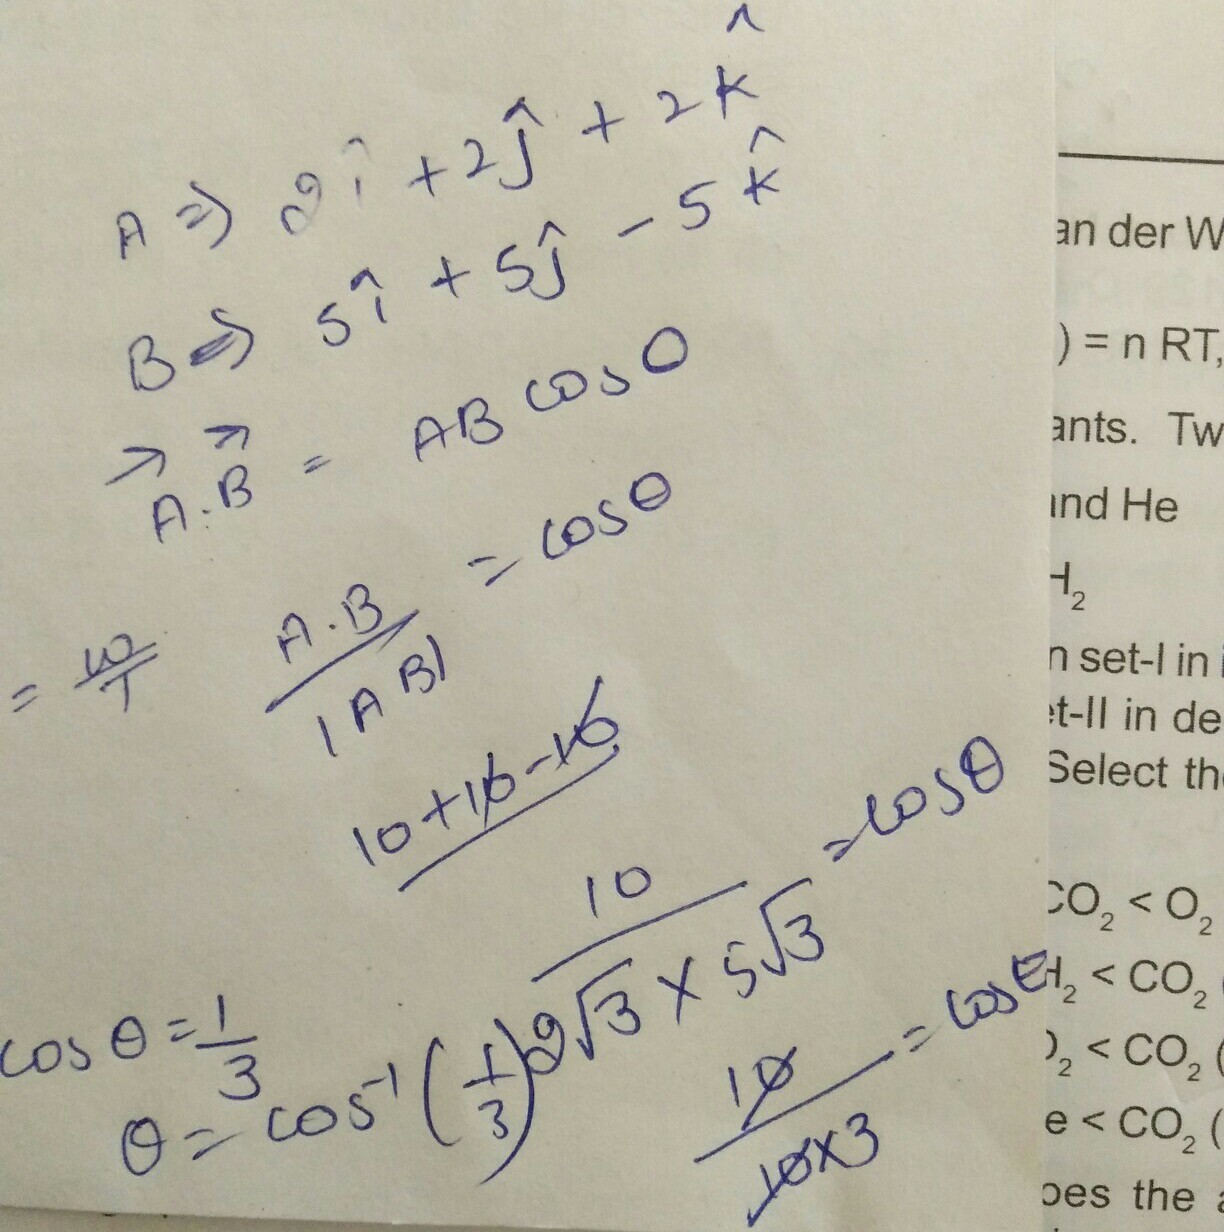 A ⇒ 2î + 2ĵ + 2k̂
B ⇒ 5î + 5ĵ - 5k̂
A⃗.B⃗ = AB cosθ
A.B / |AB| = cosθ
=
10+10-10
10 / 2√3 × 5√3 = cosθ
10 / 10×3 = cosθ
cosθ = 1/3
θ = cos⁻¹(1/3)
an der W
) = n RT,
ants. Tw
and He
H₂
n set-I in
et-II in de
Select the
CO₂ < O₂
H₂ < CO₂ (
O₂ < CO₂ (
e < CO₂ (
bes the a